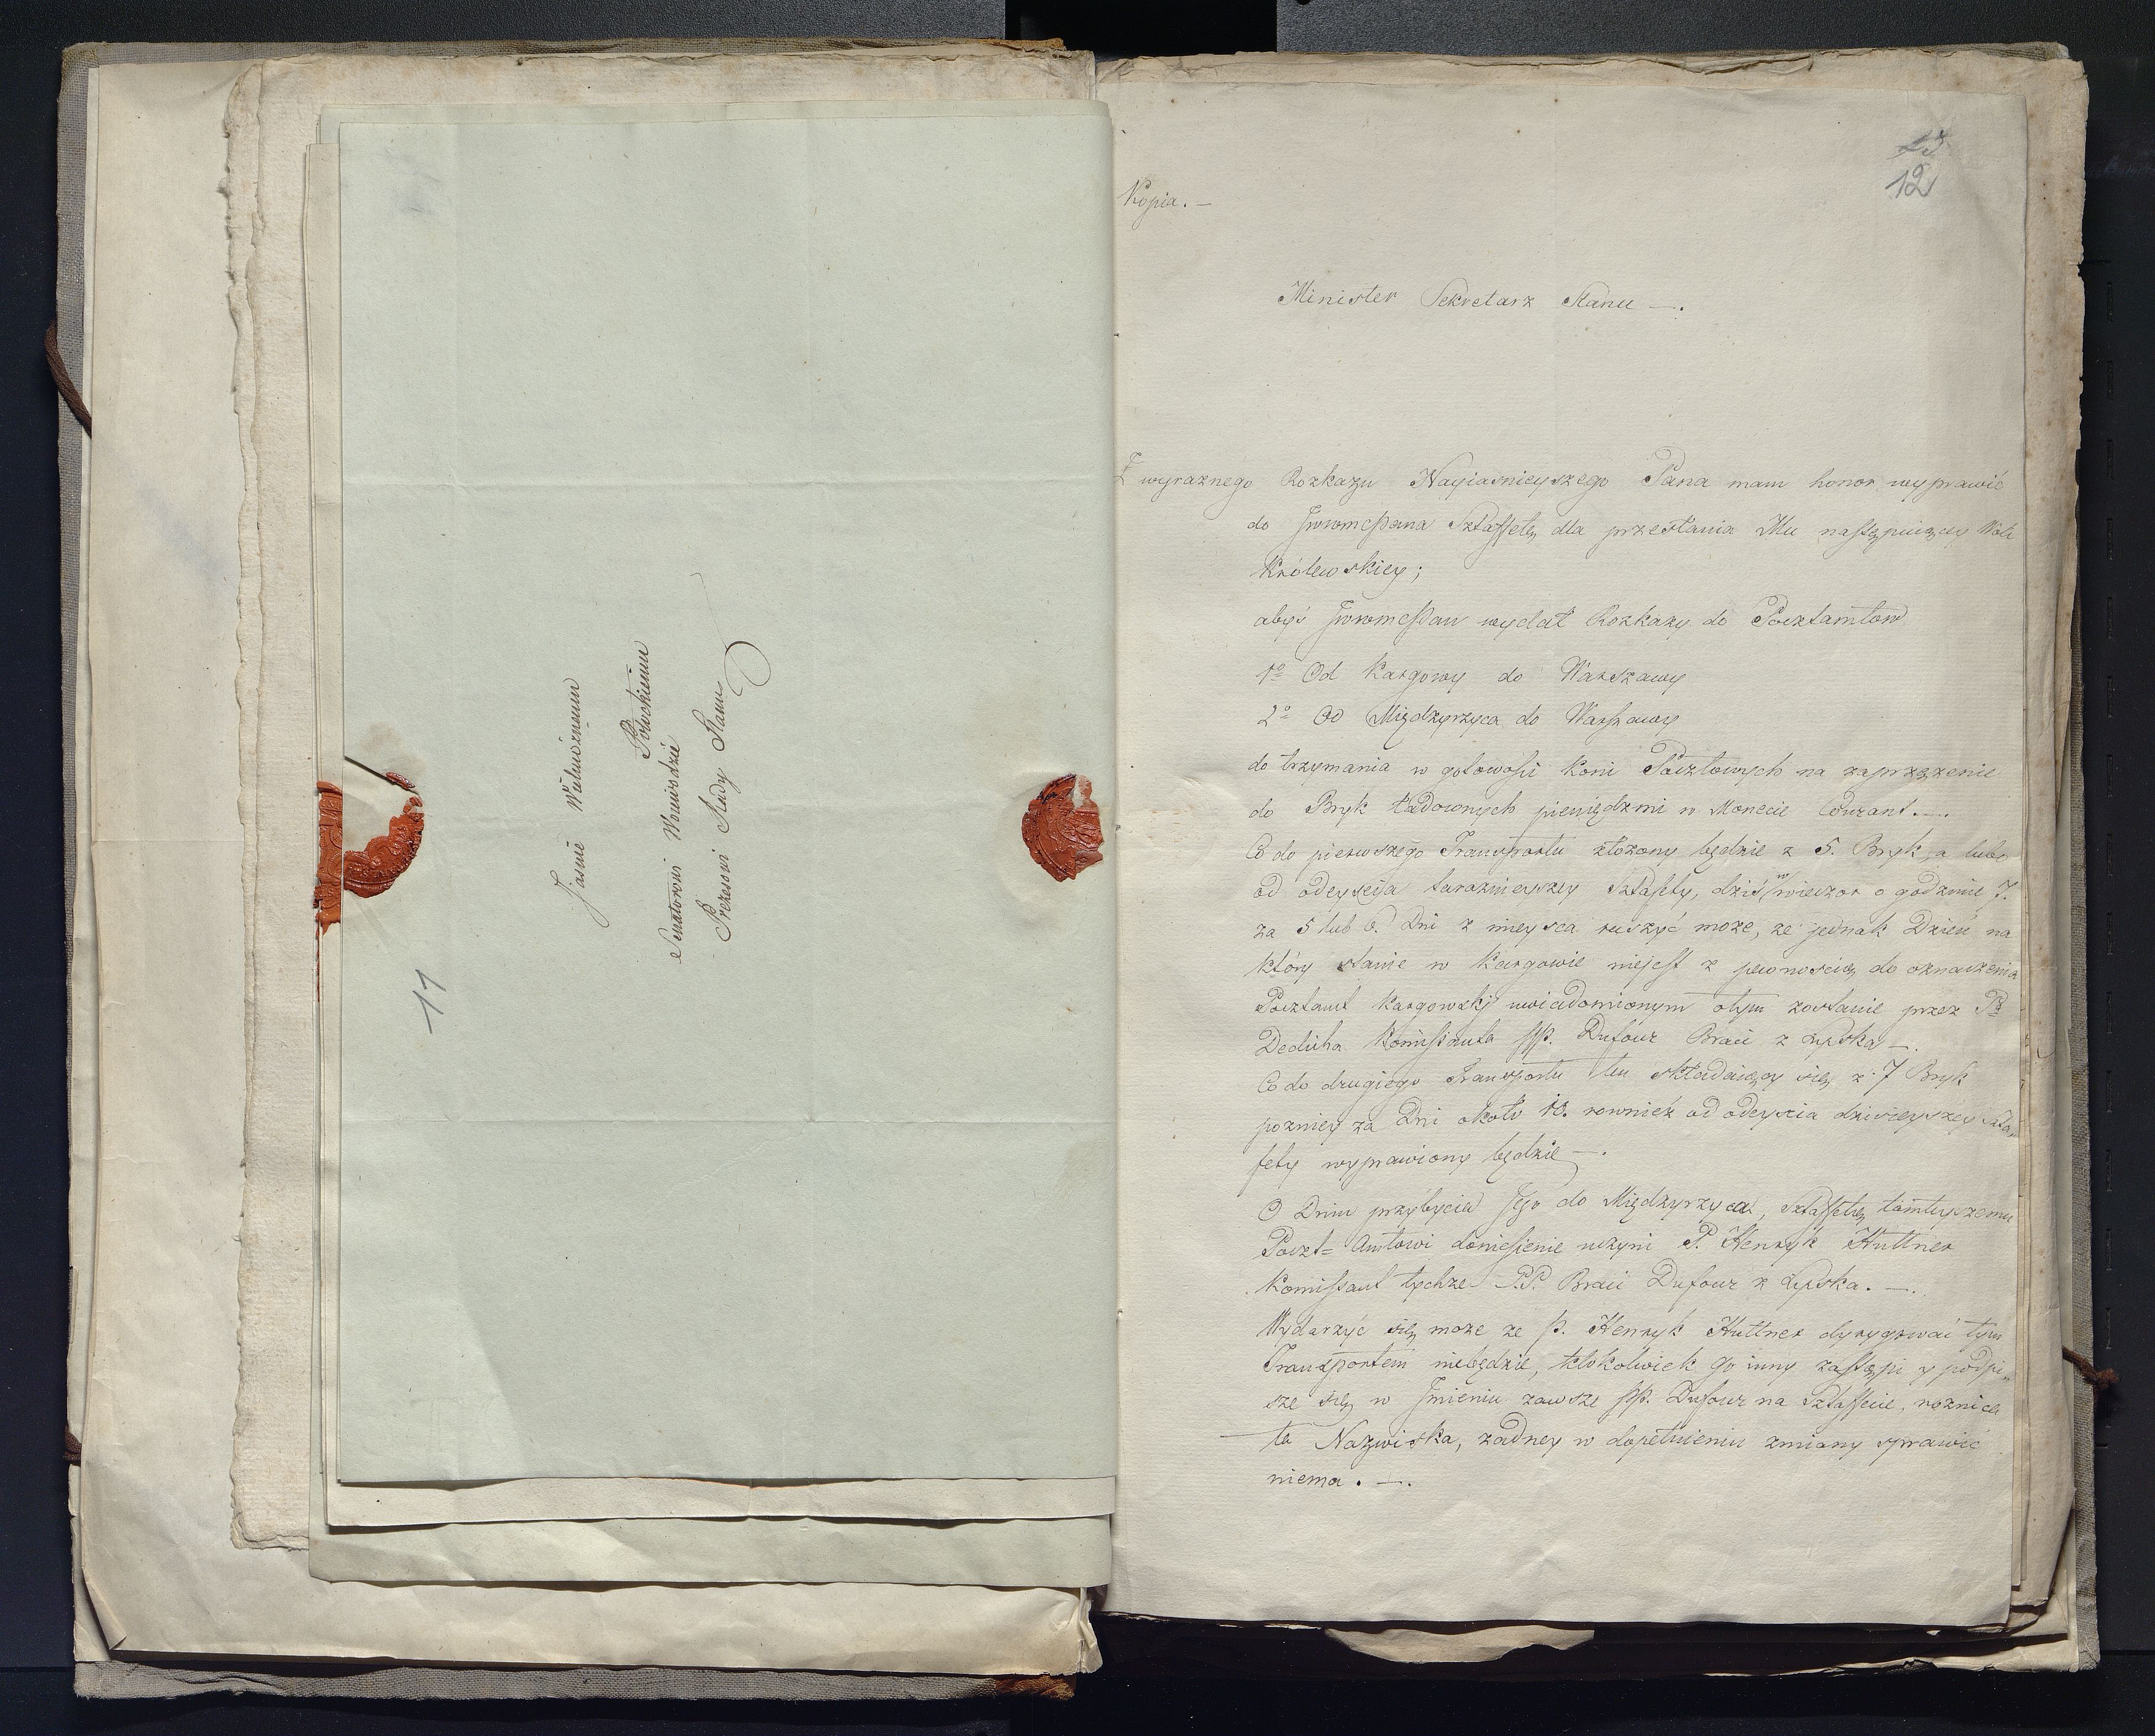 Jaśnie Wielmożnemu
Potockiemu
Senatorowi Woiewodzie
Prezesowi Rady Stanu
11
13
12
Kopia. —
Minister Sekretarz Stanu —.
Z wyraznego Rozkazu Nayiasnieyszego Pana mam honor wyprawić
do JwwmcPana Sztaffetę dla przesłania Mu następuiącey Woli
Królewskiey;
abyś JwwmcPan wydał Rozkazy do Pocztamtow
1º Od Kargowy do Warszawy
2º Od Międzyrzyca do Warszawy
do trzymania w gotowości koni Pocztowych na zaprzężenie
do Bryk ładownych pieniędzmi w Monecie Courant. —.
Co do pierwszego Transportu złożony będzie z 5. Bryk, a lubo
od odeyscia teraznieyszey Sztafety, dziś w wieczor o godzinie 7.
za 5 lub 6. Dni z mieysca ruszyć może, że jednak Dzień na
który stanie w Kargowie niejest z pewnością do oznaczenia
Pocztamt Kargowski uwiadomionym otym zostanie przez P.
Dedicha Komissanta PP. Dufour Braci z Lipska —.
Co do drugiego Transportu ten składaiący się z 7 Bryk
pozniey za Dni około 10. rownież od odeyscia dzisieyszey Szta,
fety wyprawiony będzie —.
O Dniu przybycia Jego do Międzyrzyca, Sztaffetą tamteyszemu
Poczt= Amtowi doniesienie uczyni P. Henryk Huttner
Komissant tychze PP. Braci Dufour z Lipska. —.
Wydarzyć się może ze P. Henryk Huttner dyrygować tym
Transportem niebędzie, ktokolwiek go inny zastąpi y podpi„
sze się w Jmieniu zawsze PP. Dufour na Sztaffecie, roznica
ta Nazwiska, zadney w dopełnieniu zmiany sprawić
niema. —.